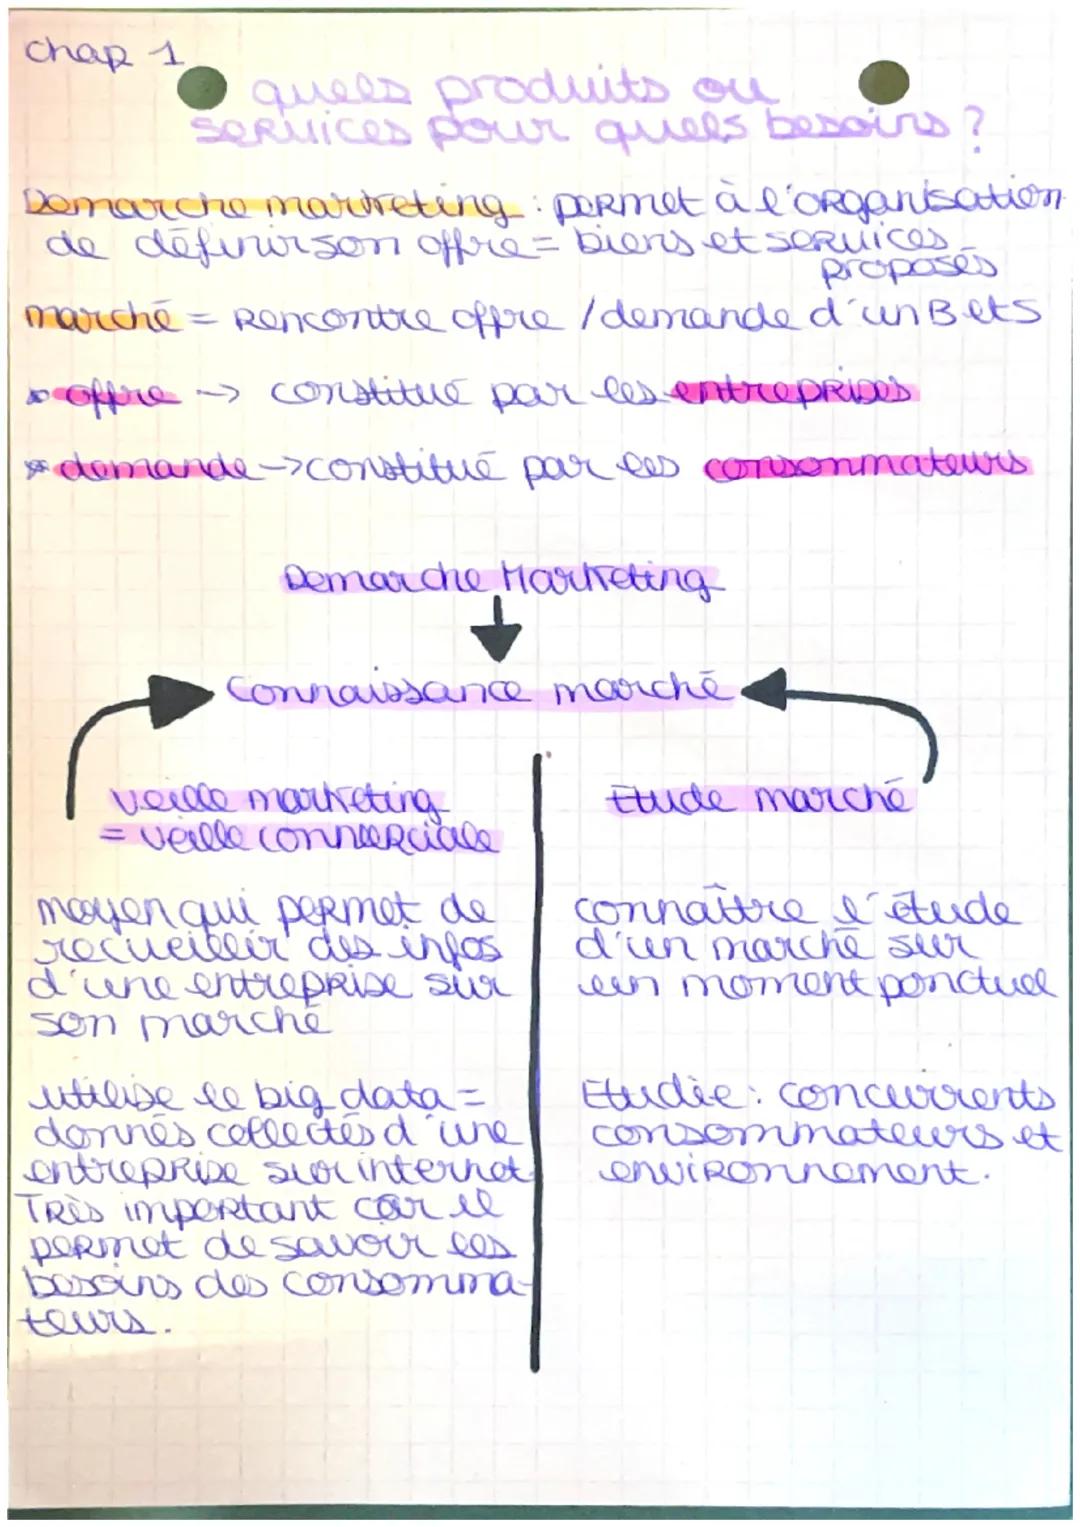 chap 1
quels produits ou
services pour quels besoins ?
Demarche marketing : permet à l'organisation
de définir son offre = biens et services
proposés
marché = Rencontre offre / demande d'un B et S
* offre -> constitué par les entreprises
* demande -> constitué par les consommateurs
Demarche Marketing
Connaissance marché
veille marketing
= veille commerciale
moyen qui permet de
recueillir des infos
d'une entreprise sur
son marché
utilise le big data =
donnés collectés d'une
entreprise sur internet
Très important car il
permet de savoir les
besoins des consomma-
teurs.
Etude marché
connaître l'étude
d'un marché sur
un moment ponctuel
Etudie : concurrents
consommateurs et
environnement.